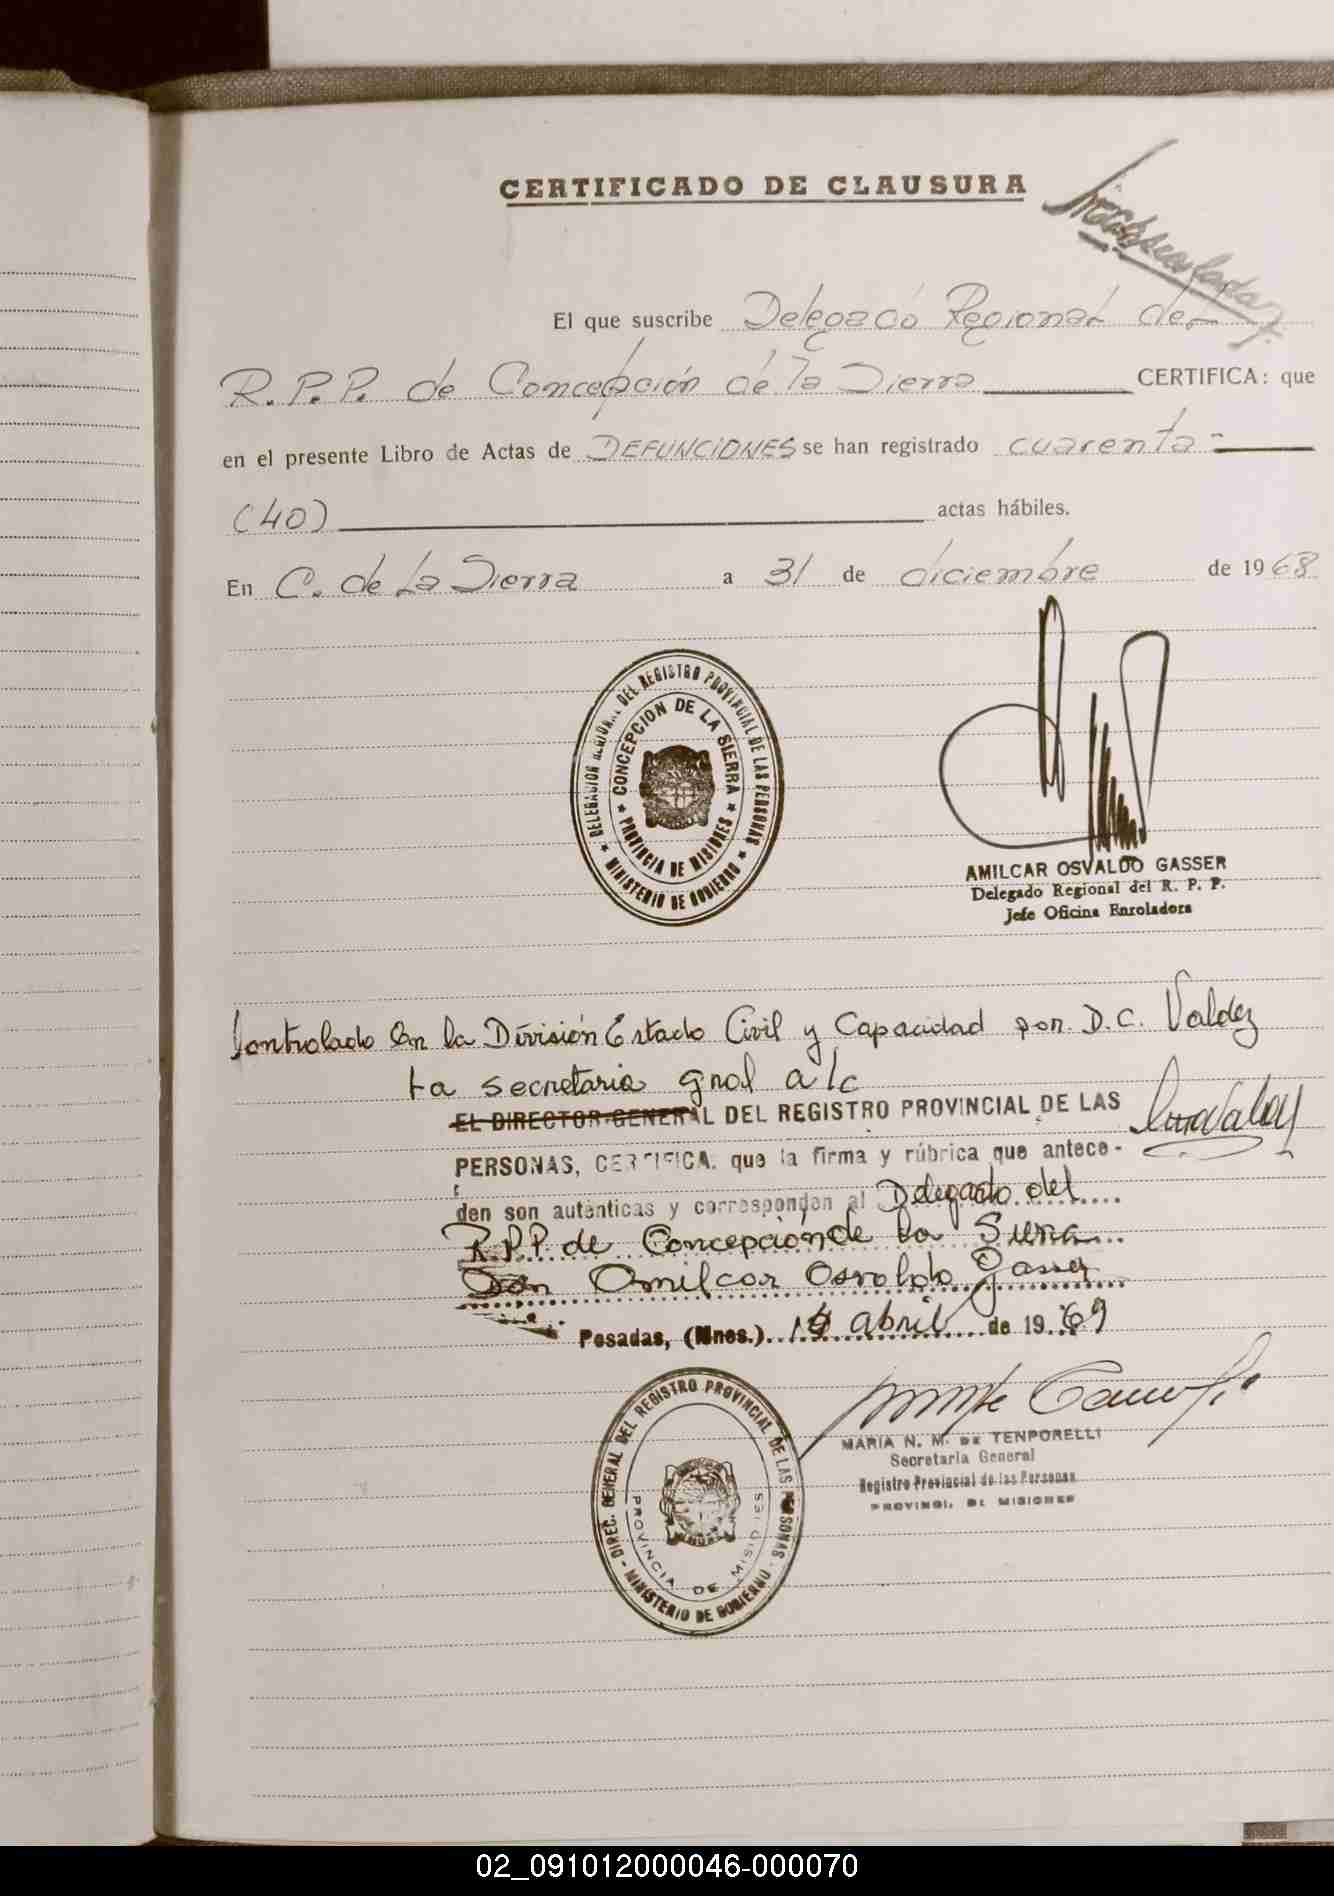 CERTIFICADO DE CLAUSURA
El que suscribe Delegado Regional del
R.P.P. de Concepción de la Sierra CERTIFICA: que
en el presente Libro de Actas de DEFUNCIONES se han registrado cuarenta=
(40) actas hábiles.
En C. de La Sierra a 31 de diciembre de 1968
DELEGACION REGIONAL DEL REGISTRO PROVINCIAL DE LAS PERSONAS
★ MINISTERIO DE GOBIERNO ★
★ CONCEPCION DE LA SIERRA ★
PROVINCIA DE MISIONES
AMILCAR OSVALDO GASSER
Delegado Regional del R. P. P.
Jefe Oficina Enroladora
Controlado en la División Estado Civil y Capacidad por D.C. Valdez
La secretaria gral a/c
EL DIRECTOR GENERAL DEL REGISTRO PROVINCIAL DE LAS
PERSONAS, CERTIFICA. que la firma y rúbrica que antece-
den son auténticas y corresponden al Delegado del
R.P.P. de Concepción de la Sierra
Don Amilcar Osvaldo Gasser
Posadas, (Mnes.) abril de 1969
DIREC. GENERAL DEL REGISTRO PROVINCIAL DE LAS PERSONAS
- MINISTERIO DE GOBIERNO -
PROVINCIA DE MISIONES
MARIA N. M. DE TENPORELLI
Secretaria General
Registro Provincial de las Personas
PROVINCI. DE MISIONES
02_091012000046-000070